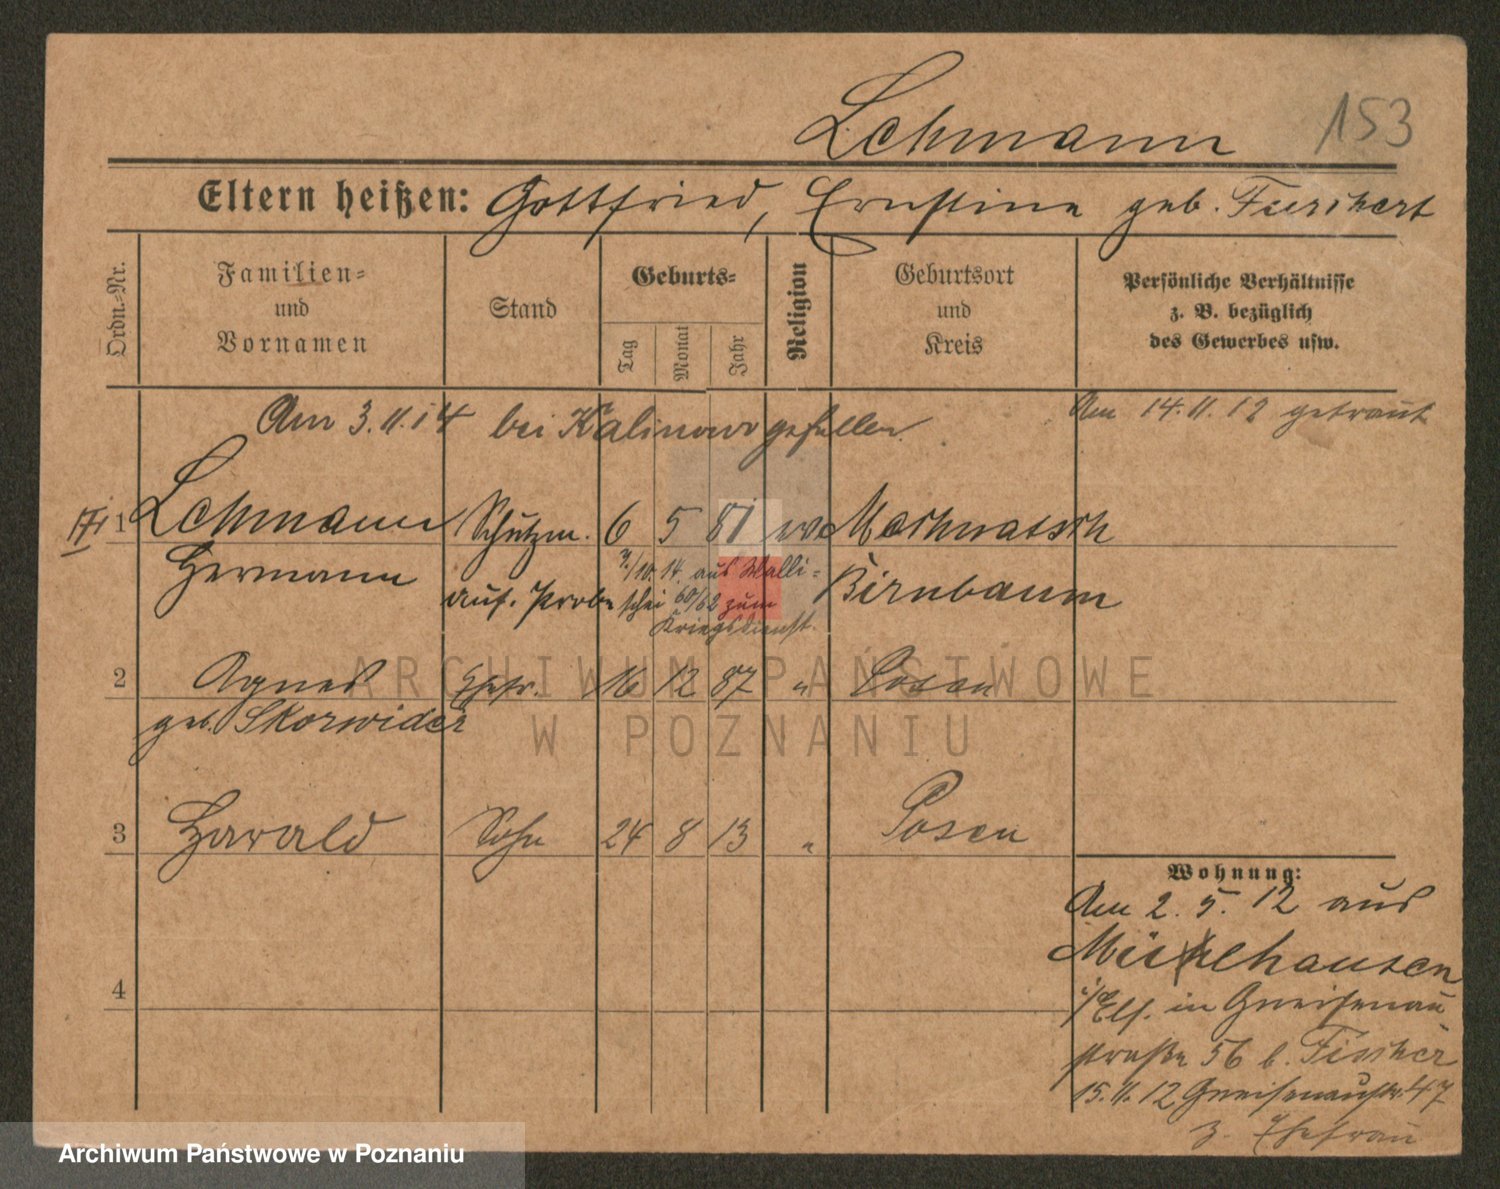 Lehmann 153
Eltern heißen: Gottfried, Ernstine geb.
Ordn.-Nr.
Familien-
und
Vornamen
Stand
Geburts-
Tag
Monat
Jahr
Religion
Geburtsort
und
Kreis
Persönliche Verhältnisse
z. B. bezüglich
des Gewerbes usw.
Am 3.11.14 bei Kalinowo gefallen.
Am 14.11.12 getraut
1 Lehmann Schutzm. 6 5 81 ev
Hermann auf. Probe Birnbaum
7./10. 14. aus Walli-
schei 60/62 zum
Kriegsdienst.
2 Agnes Ehefr. 16 12 87 " Posen
geb. Skorwider
3 Harald Sohn 24 8 13 " Posen
4
Wohnung:
Am 2. 5. 12 aus
Mülhausen
i/Els. in Gneisenau-
straße 56 b. Fischer
15.11.12 Gneisenaustr. 47
z. Ehefrau
ARCHIWUM PAŃSTWOWE
W POZNANIU
Archiwum Państwowe w Poznaniu